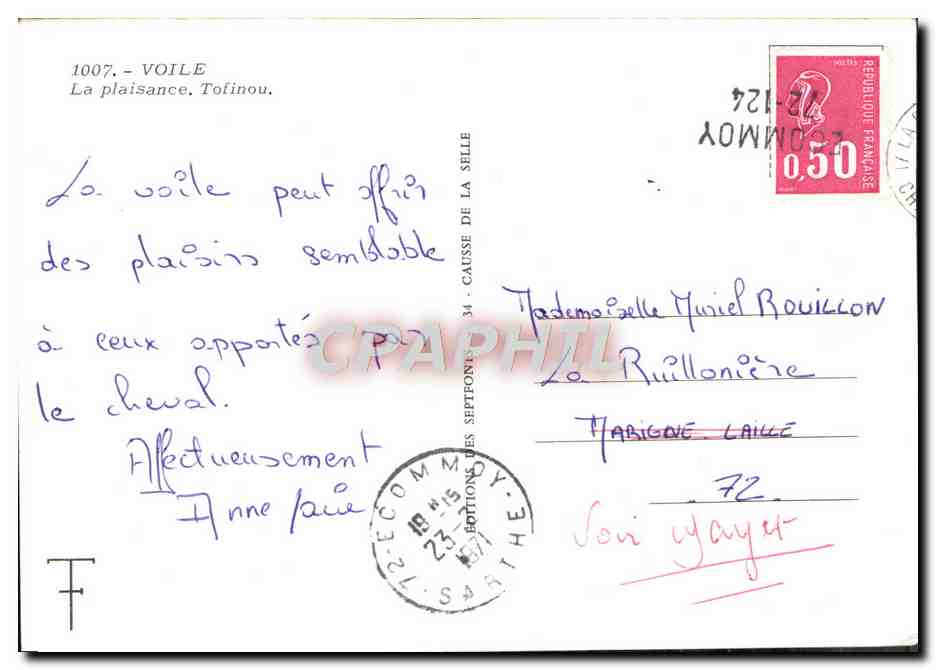 1007. - VOILE
La plaisance. Tofinou.
La voile peut offrir
des plaisirs semblable
à ceux apportés par
le cheval.
Affectueusement
Anne
EDITIONS DES SEPTFONTS 34 - CAUSSE DE LA SELLE
POSTES
REPUBLIQUE FRANÇAISE
0,50
ECOMMOY
72-124
Mademoiselle Muriel ROUILLON
La Ruillonière
MARIGNE-LAILLE
72
Voir Mayet
72-ECOMMOY
19H15
1971
SARTHE
CPAPHIL